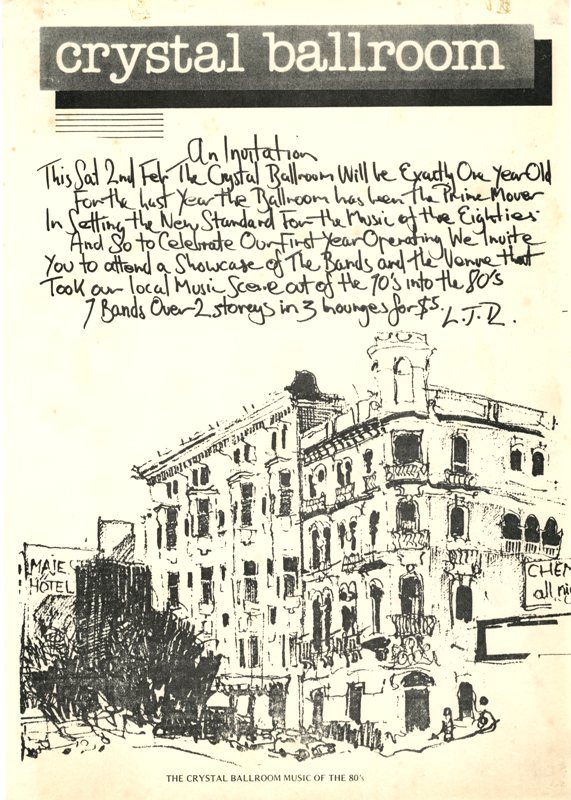 crystal ballroom
An Invitation
This Sat 2nd Feb The Crystal Ballroom Will be Exactly One Year Old
For the Last Year the Ballroom has been the Prime Mover
In Setting the New Standard For the Music of the Eighties.
And So to Celebrate Our First Year Operating We Invite
You to attend a Showcase of The Bands and the Venue that
Took our local Music Scene out of the 70's into the 80's
7 Bands Over 2 storeys in 3 lounges for $5.
L.J.R.
MAJES
HOTEL
CHEM
all nig
THE CRYSTAL BALLROOM MUSIC OF THE 80's